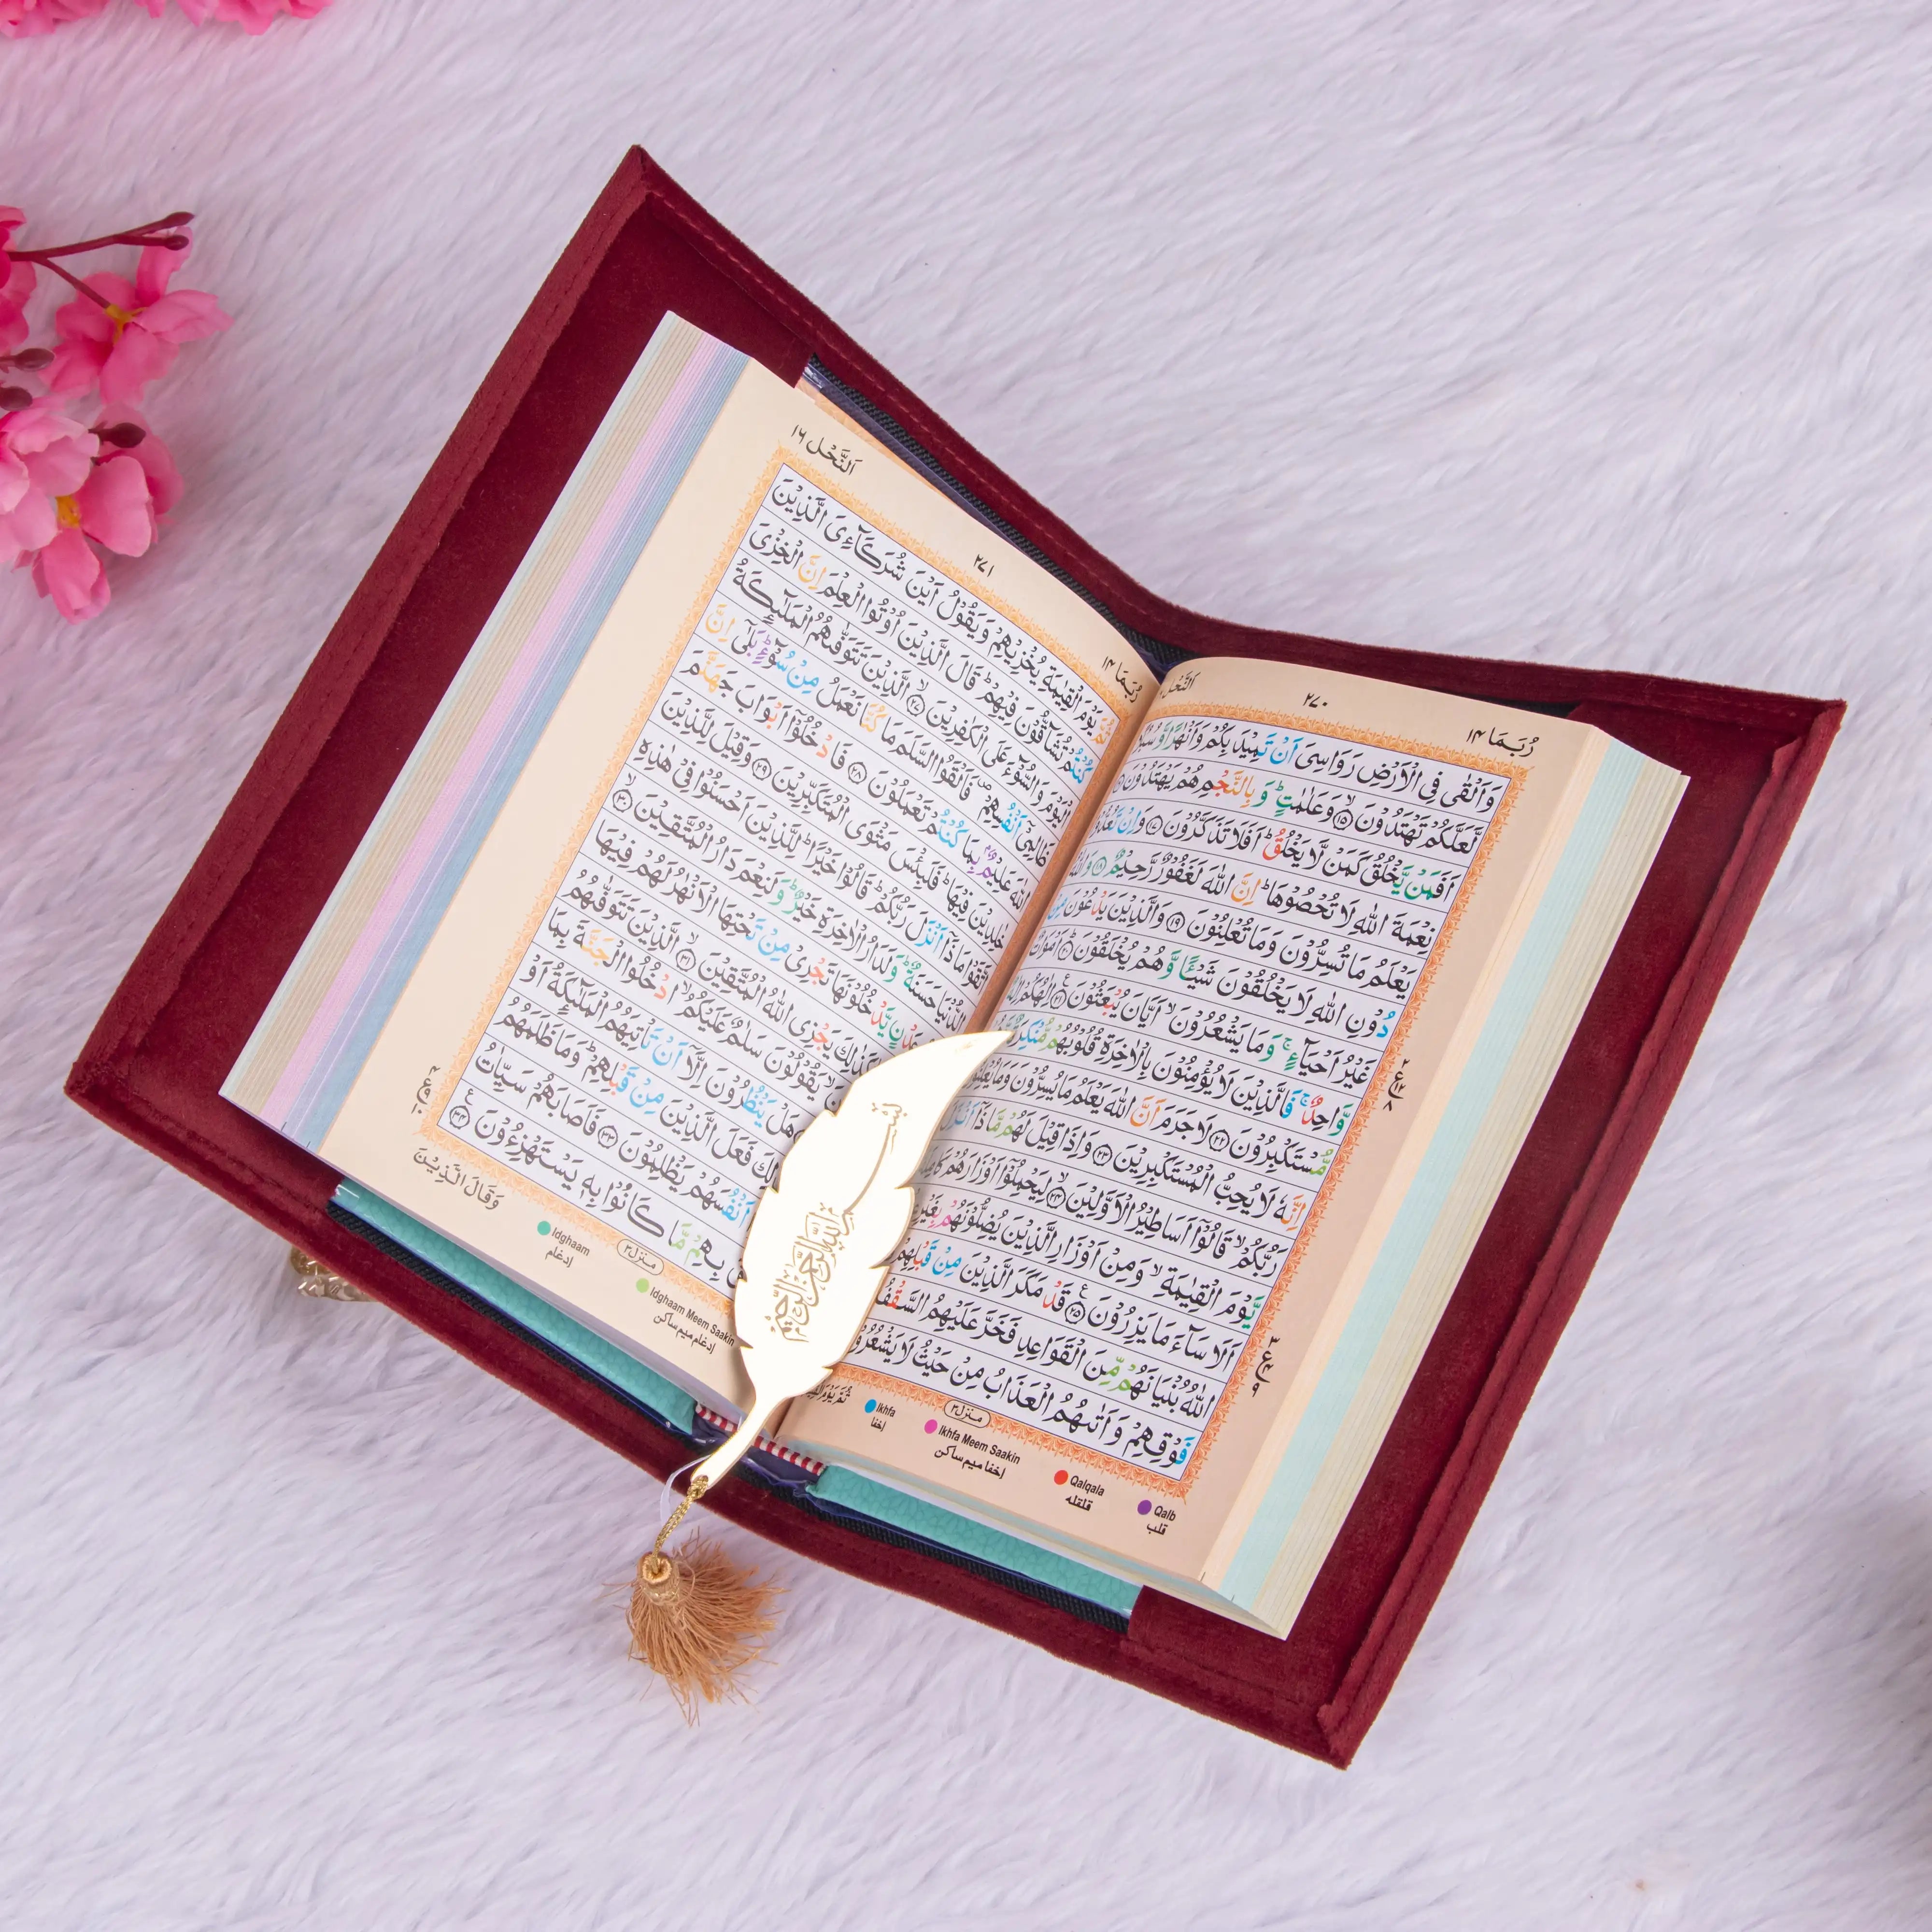 رُبَمَا ١٤
٢٧٠
اَلنَّحْل
وَاَلْقٰى فِى الْاَرْضِ رَوَاسِىَ اَنْ تَمِيْدَ بِكُمْ وَاَنْهٰرًا وَّسُبُلًا
لَّعَلَّكُمْ تَهْتَدُوْنَ ۙ﴿۱۵﴾ وَعَلٰمٰتٍ ؕ وَبِالنَّجْمِ هُمْ يَهْتَدُوْنَ
اَفَمَنْ يَّخْلُقُ كَمَنْ لَّا يَخْلُقُ ؕ اَفَلَا تَذَكَّرُوْنَ ﴿۱۷﴾ وَاِنْ تَعُدُّوْا
نِعْمَةَ اللّٰهِ لَا تُحْصُوْهَا ؕ اِنَّ اللّٰهَ لَغَفُوْرٌ رَّحِيْمٌ ﴿۱۸﴾ وَاللّٰهُ
يَعْلَمُ مَا تُسِرُّوْنَ وَمَا تُعْلِنُوْنَ ﴿۱۹﴾ وَالَّذِيْنَ يَدْعُوْنَ مِنْ
دُوْنِ اللّٰهِ لَا يَخْلُقُوْنَ شَيْـًٔا وَّهُمْ يُخْلَقُوْنَ ؕ﴿۲۰﴾ اَمْوَاتٌ
غَيْرُ اَحْيَآءٍ ۚ وَمَا يَشْعُرُوْنَ ۙ اَيَّانَ يُبْعَثُوْنَ ﴿۲۱﴾ اِلٰهُكُمْ اِلٰهٌ
وَّاحِدٌ ۚ فَالَّذِيْنَ لَا يُؤْمِنُوْنَ بِالْاٰخِرَةِ قُلُوْبُهُمْ مُّنْكِرَةٌ
مُّسْتَكْبِرُوْنَ ﴿۲۲﴾ لَا جَرَمَ اَنَّ اللّٰهَ يَعْلَمُ مَا يُسِرُّوْنَ وَمَا يُعْلِنُوْنَ
اِنَّهٗ لَا يُحِبُّ الْمُسْتَكْبِرِيْنَ ﴿۲۳﴾ وَاِذَا قِيْلَ لَهُمْ مَّاذَاۤ اَنْزَلَ
رَبُّكُمْ ۙ قَالُوْۤا اَسَاطِيْرُ الْاَوَّلِيْنَ ۙ﴿۲۴﴾ لِيَحْمِلُوْۤا اَوْزَارَهُمْ
يَّوْمَ الْقِيٰمَةِ ۙ وَمِنْ اَوْزَارِ الَّذِيْنَ يُضِلُّوْنَهُمْ بِغَيْرِ
اَلَا سَآءَ مَا يَزِرُوْنَ ﴿۲۵﴾ قَدْ مَكَرَ الَّذِيْنَ مِنْ قَبْلِهِمْ
اللّٰهُ بُنْيَانَهُمْ مِّنَ الْقَوَاعِدِ فَخَرَّ عَلَيْهِمُ السَّقْفُ
فَوْقِهِمْ وَاَتٰىهُمُ الْعَذَابُ مِنْ حَيْثُ لَا يَشْعُرُوْنَ
منزل٣
Ikhfa
إخفا
Ikhfa Meem Saakin
إخفا ميم ساكن
Qalqala
قلقله
Qalb
قلب
رُبَمَا ١٤
٢٧١
اَلنَّحْل ١٦
يَوْمَ الْقِيٰمَةِ يُخْزِيْهِمْ وَيَقُوْلُ اَيْنَ شُرَكَآءِىَ الَّذِيْنَ
كُنْتُمْ تُشَآقُّوْنَ فِيْهِمْ ؕ قَالَ الَّذِيْنَ اُوْتُوا الْعِلْمَ اِنَّ الْخِزْىَ
الْيَوْمَ وَالسُّوْٓءَ عَلَى الْكٰفِرِيْنَ ۙ﴿۲۷﴾ الَّذِيْنَ تَتَوَفّٰىهُمُ الْمَلٰٓئِكَةُ
ظَالِمِىْۤ اَنْفُسِهِمْ ۪ فَاَلْقَوُا السَّلَمَ مَا كُنَّا نَعْمَلُ مِنْ سُوْٓءٍ ؕ بَلٰٓى اِنَّ
اللّٰهَ عَلِيْمٌۢ بِمَا كُنْتُمْ تَعْمَلُوْنَ ﴿۲۸﴾ فَادْخُلُوْۤا اَبْوَابَ جَهَنَّمَ
خٰلِدِيْنَ فِيْهَا ؕ فَلَبِئْسَ مَثْوَى الْمُتَكَبِّرِيْنَ ﴿۲۹﴾ وَقِيْلَ لِلَّذِيْنَ
اتَّقَوْا مَاذَاۤ اَنْزَلَ رَبُّكُمْ ؕ قَالُوْا خَيْرًا ؕ لِلَّذِيْنَ اَحْسَنُوْا فِىْ هٰذِهِ
الدُّنْيَا حَسَنَةٌ ؕ وَلَدَارُ الْاٰخِرَةِ خَيْرٌ ؕ وَلَنِعْمَ دَارُ الْمُتَّقِيْنَ ۙ﴿۳۰﴾
يَّدْخُلُوْنَهَا تَجْرِىْ مِنْ تَحْتِهَا الْاَنْهٰرُ لَهُمْ فِيْهَا
كَذٰلِكَ يَجْزِى اللّٰهُ الْمُتَّقِيْنَ ۙ﴿۳۱﴾ الَّذِيْنَ تَتَوَفّٰىهُمُ
يَقُوْلُوْنَ سَلٰمٌ عَلَيْكُمُ ۙ ادْخُلُوا الْجَنَّةَ بِمَا
هَلْ يَنْظُرُوْنَ اِلَّاۤ اَنْ تَاْتِيَهُمُ الْمَلٰٓئِكَةُ اَوْ
فَعَلَ الَّذِيْنَ مِنْ قَبْلِهِمْ ؕ وَمَا ظَلَمَهُمُ
اَنْفُسَهُمْ يَظْلِمُوْنَ ﴿۳۳﴾ فَاَصَابَهُمْ سَيِّاٰتُ
بِهِمْ مَّا كَانُوْا بِهٖ يَسْتَهْزِءُوْنَ ﴿۳۴﴾
وَقَالَ الَّذِيْنَ
منزل٣
Idghaam
إدغام
Idghaam Meem Saakin
إدغام ميم ساكن
بسم الله الرحمن الرحيم